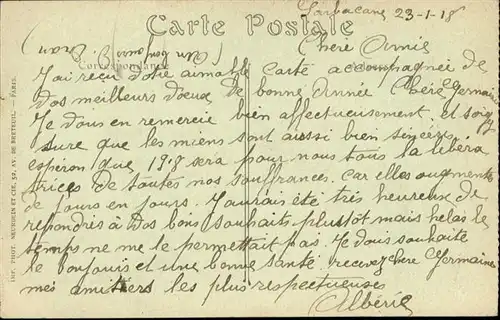 Carte Postale
23-1-18
Chère Amie
Correspondance
J'ai reçu votre aimable Carte accompagnée de
vos meilleurs vœux de bonne Année Chère Germaine
Je vous en remercie bien affectueusement et soiyez
sure que les miens sont aussi bien sincères
espéron que 1918 sera pour nous tous la libéra
trices de toutes nos souffrances. car elles augmente
de jours en jours. J'aurais été très heureux de
repondres à vos bons souhaits plustot mais helas le
temps ne me le permettait pas. Je vous souhaite
le bonjours et une bonne santé recevez chère Germaine
mes amitiers les plus respectueuses
Albéric
IMP. PHOT. NEURDEIN ET CIE, 52, AV. DE BRETEUIL, PARIS.